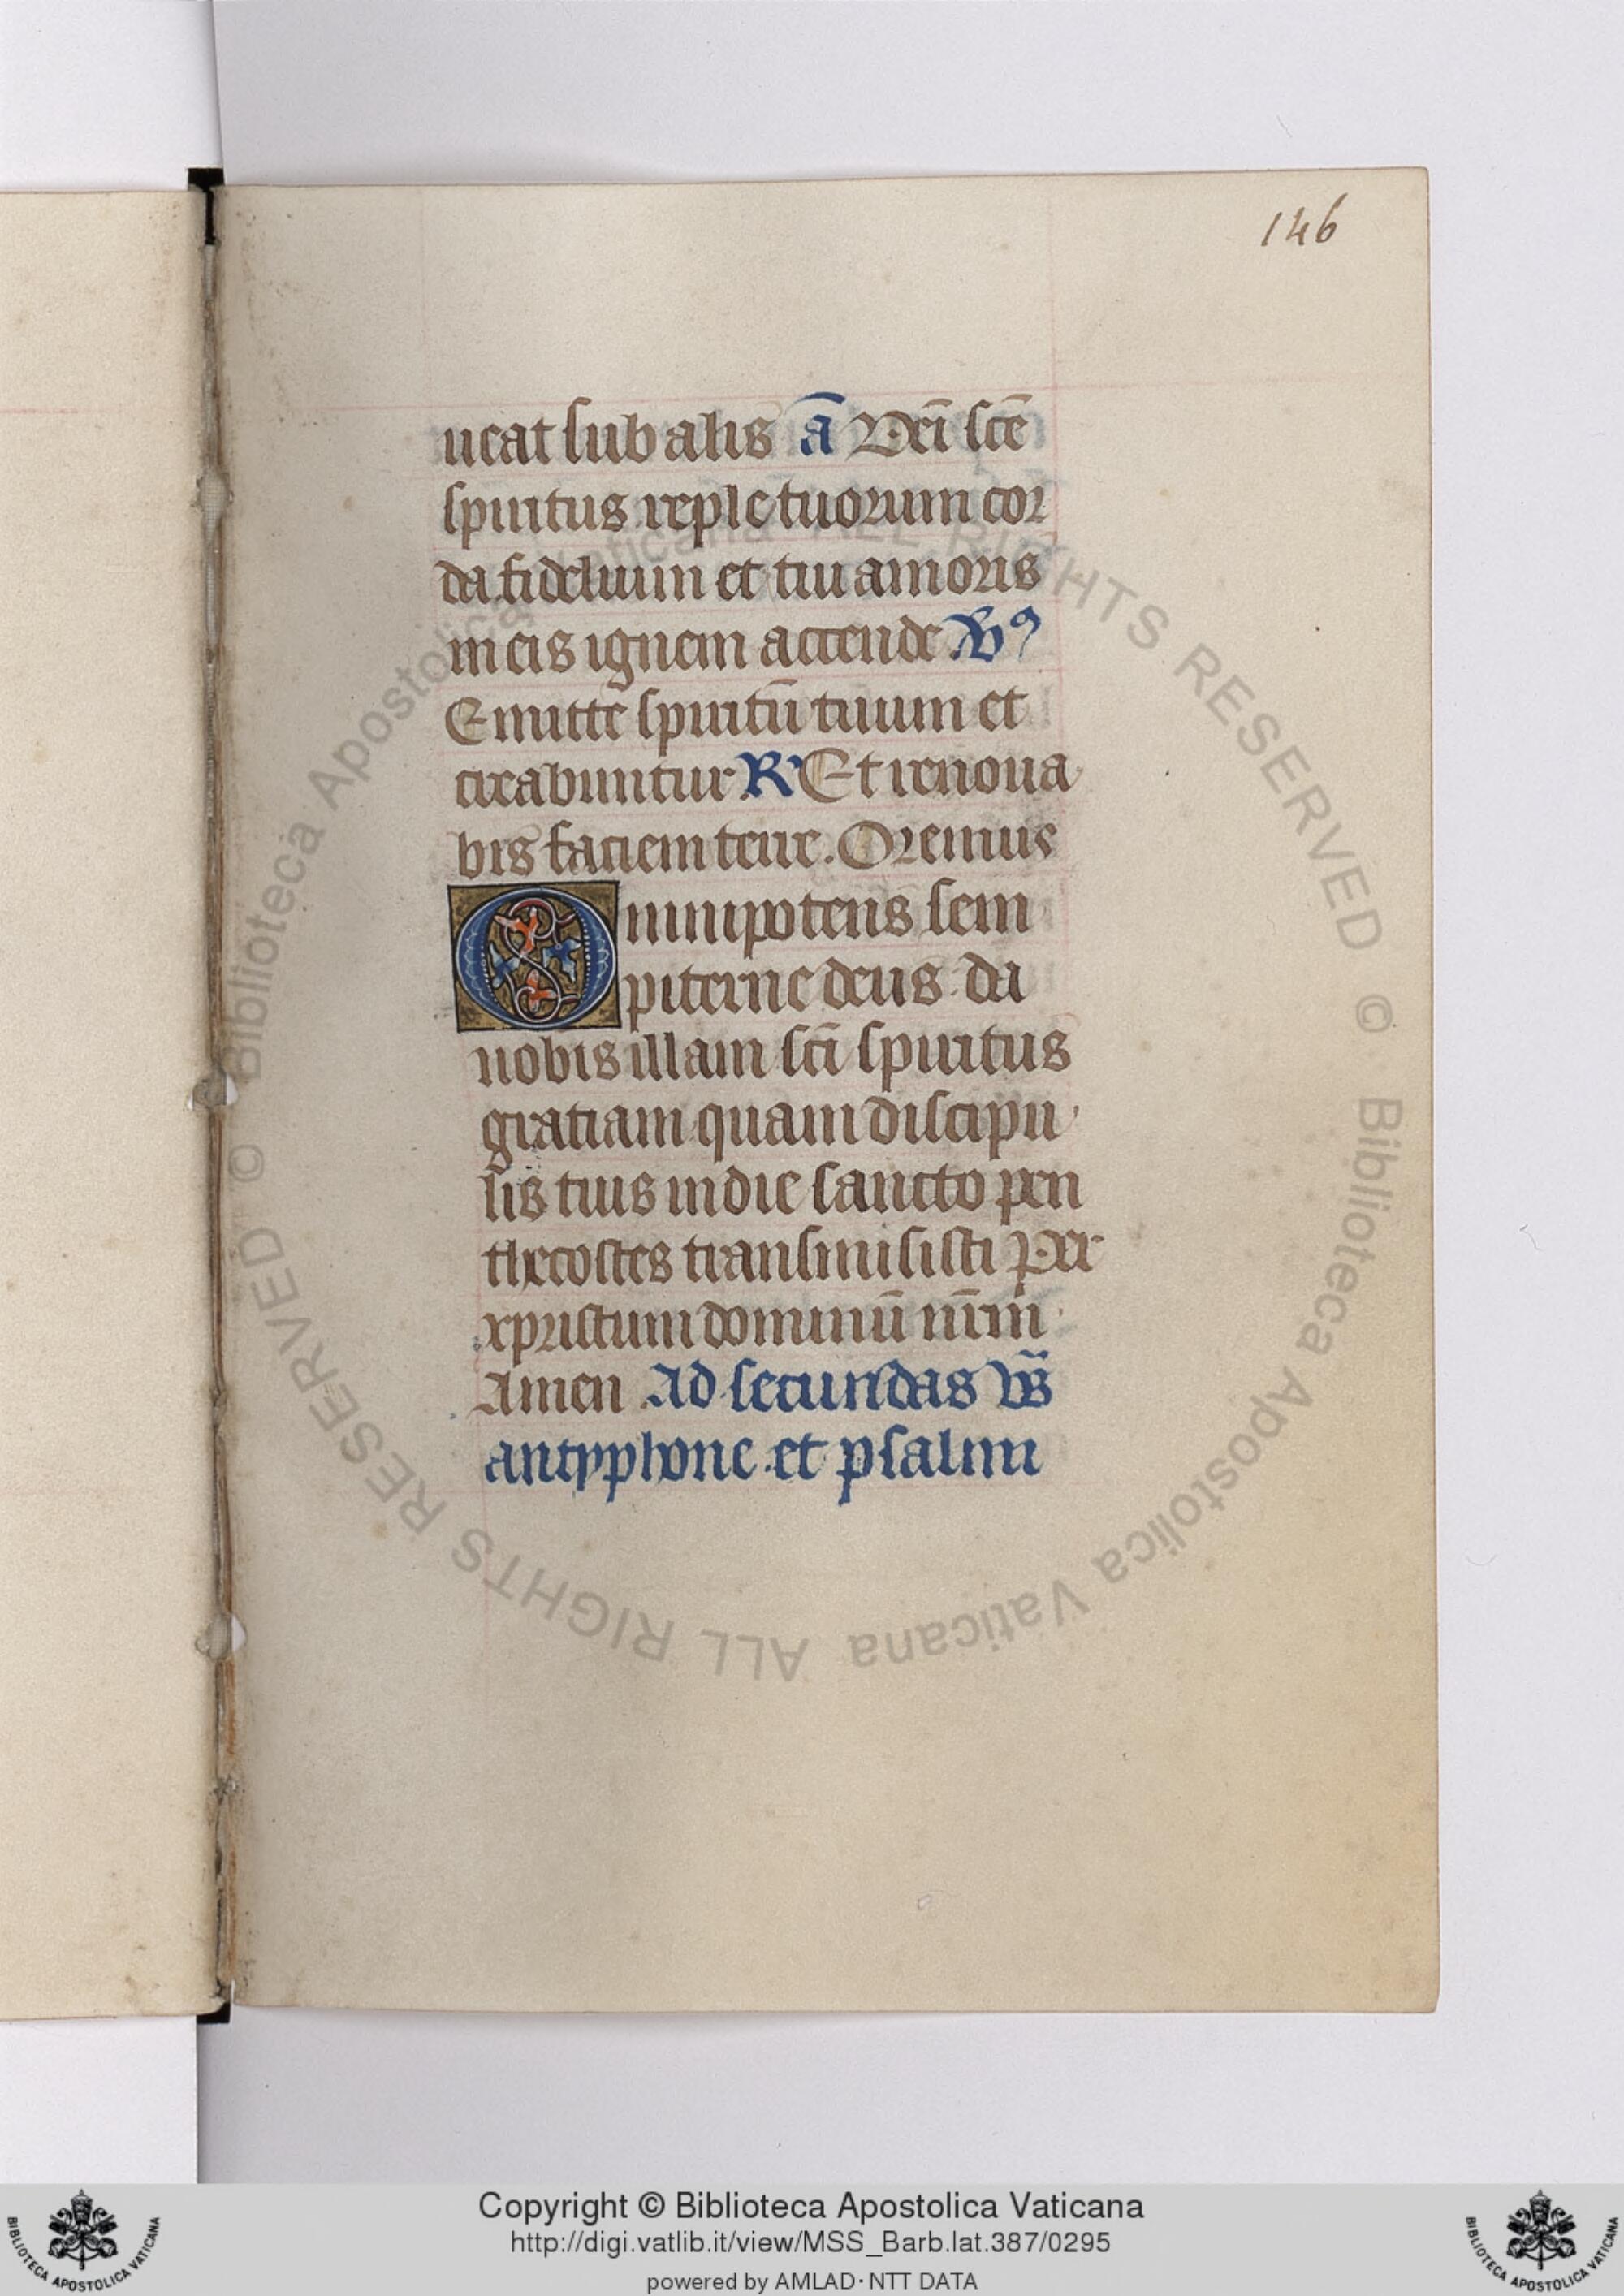 146
ueat sub alis ā Veī scē
spiritus reple tuorum cor
da fidelium et tui amoris
in eis ignem accende V9
Emitte spiritū tuum et
creabuntur R Et renoua
bis faciem terre. Oremus
Omnipotens sem
piterne deus da
nobis illam scī spiritus
gratiam quam discipu
lis tuis in die sancto pen
thecostes transmisisti Per
xpristum dominū nrm̄
Amen Ad secundas vs̄
antyphone et psalmi
© Biblioteca Apostolica Vaticana ALL RIGHTS RESERVED
© Biblioteca Apostolica Vaticana ALL RIGHTS RESERVED
Copyright © Biblioteca Apostolica Vaticana
http://digi.vatlib.it/view/MSS_Barb.lat.387/0295
powered by AMLAD·NTT DATA
BIBLIOTECA APOSTOLICA VATICANA
BIBLIOTECA APOSTOLICA VATICANA